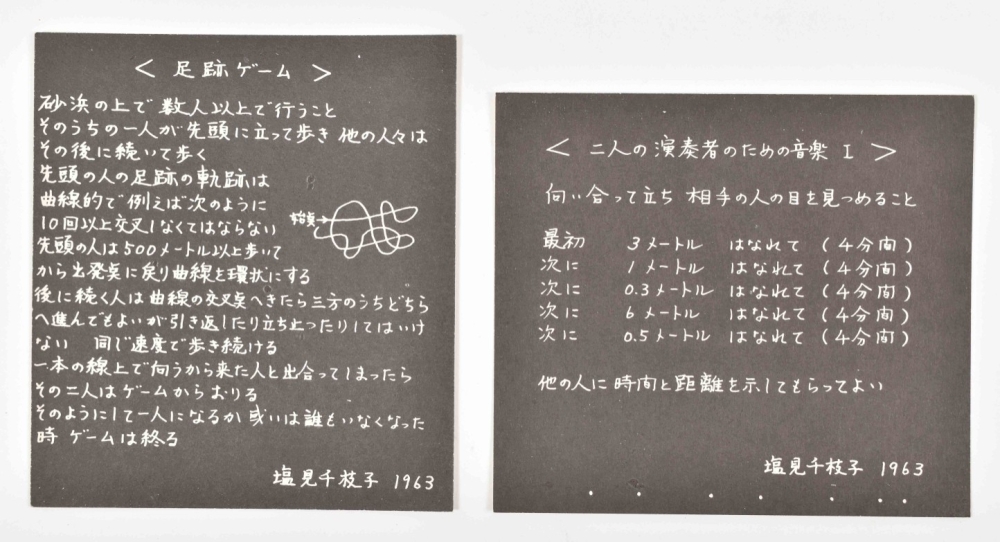 < 足跡ゲーム >
砂浜の上で 数人以上で行うこと
そのうちの一人が先頭に立って歩き 他の人々は
その後に続いて歩く
先頭の人の足跡の軌跡は
曲線的で 例えば次のように
10回以上交叉しなくてはならない
始点→
先頭の人は500メートル以上歩いて
から出発点に戻り曲線を環状にする
後に続く人は曲線の交叉点へきたら三方のうちどちら
へ進んでもよいが引き返したり立ち止ったりしてはいけ
ない 同じ速度で歩き続ける
一本の線上で向うから来た人と出合ってしまったら
その二人はゲームからおりる
そのようにして一人になるか 或いは誰もいなくなった
時 ゲームは終る
塩見千枝子 1963
< 二人の演奏者のための音楽 I >
向い合って立ち 相手の人の目を見つめること
最初 3メートル はなれて (4分間)
次に 1メートル はなれて (4分間)
次に 0.3メートル はなれて (4分間)
次に 6メートル はなれて (4分間)
次に 0.5メートル はなれて (4分間)
他の人に時間と距離を示してもらってよい
塩見千枝子 1963